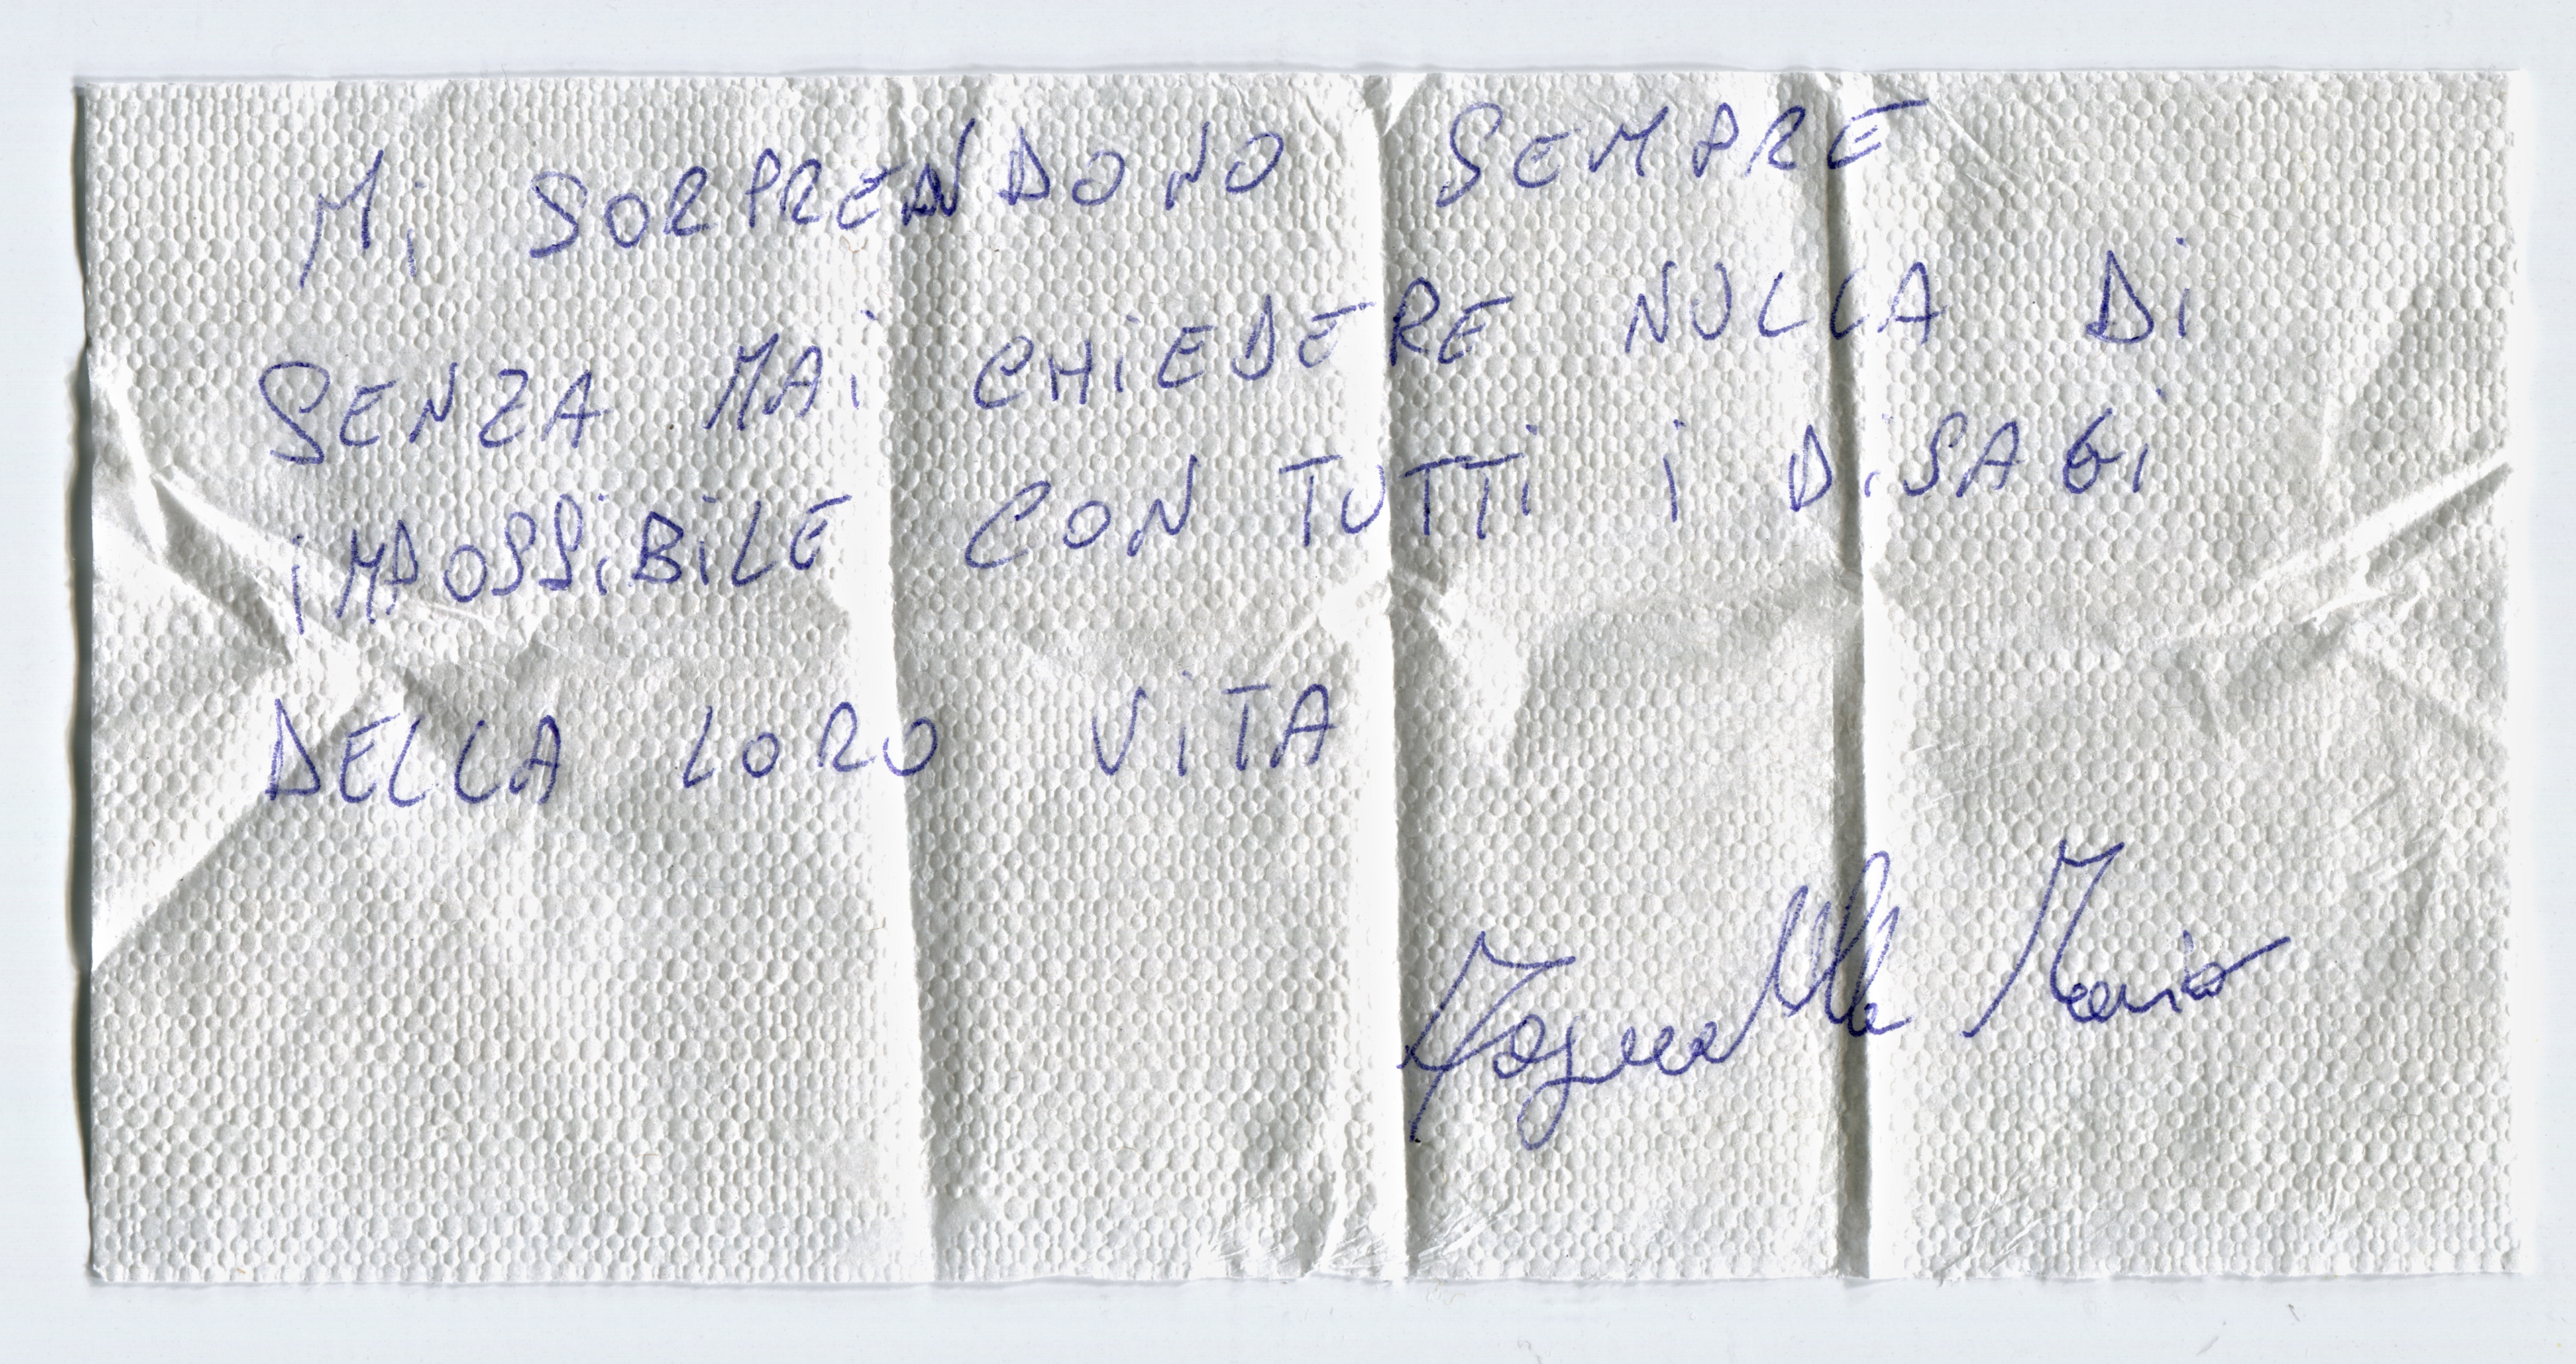 Mi SORPRENDONO SEMPRE
SENZA MAi CHiEDERE NULLA Di
iMPOSSiBiLE CON TUTTi i DiSAGi
DELLA LORO ViTA
Mario